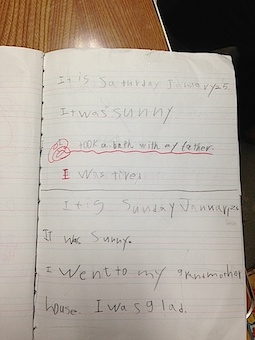 It is Saturday January 25.
It was sunny
I took a bath with my father.
I was tired.
It is Sunday January 26
It was sunny.
I went to my grandmother
house. I was glad.